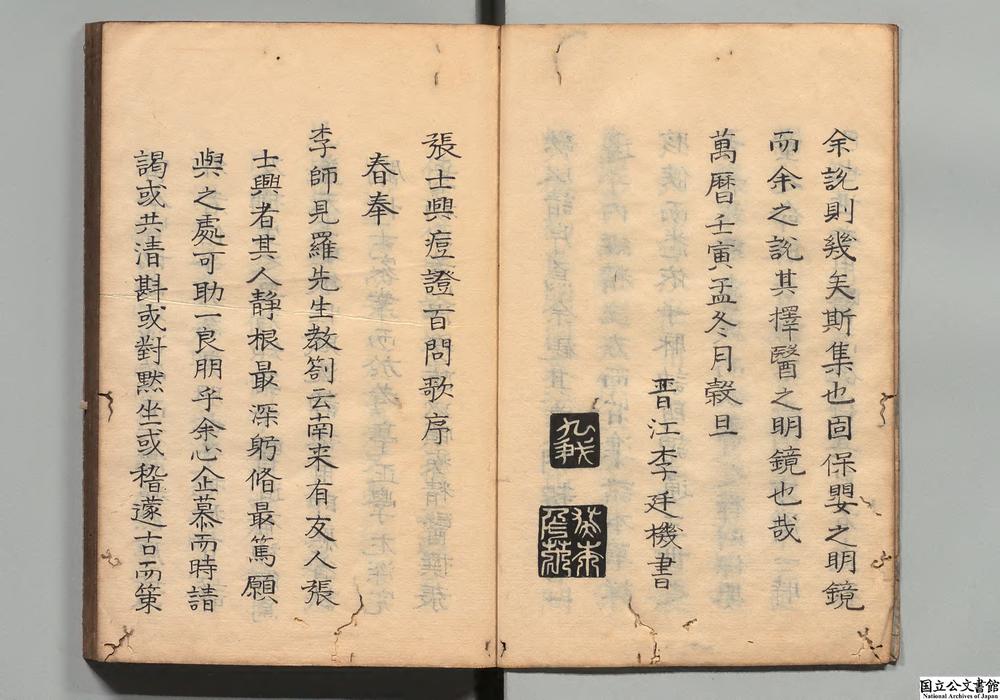 余說則幾矣斯集也固保嬰之明鏡
而余之說其擇醫之明鏡也哉
萬曆壬寅孟冬月穀旦
晋江李廷機書
九我
癸未
張士興痘證百問歌序
春奉
李師見羅先生教劄云南来有友人張
士興者其人靜根最深躬脩最篤願
與之處可助一良朋乎余心企慕而時請
謁或共清斟或對黙坐或稽邃古而策
国立公文書館
National Archives of Japan